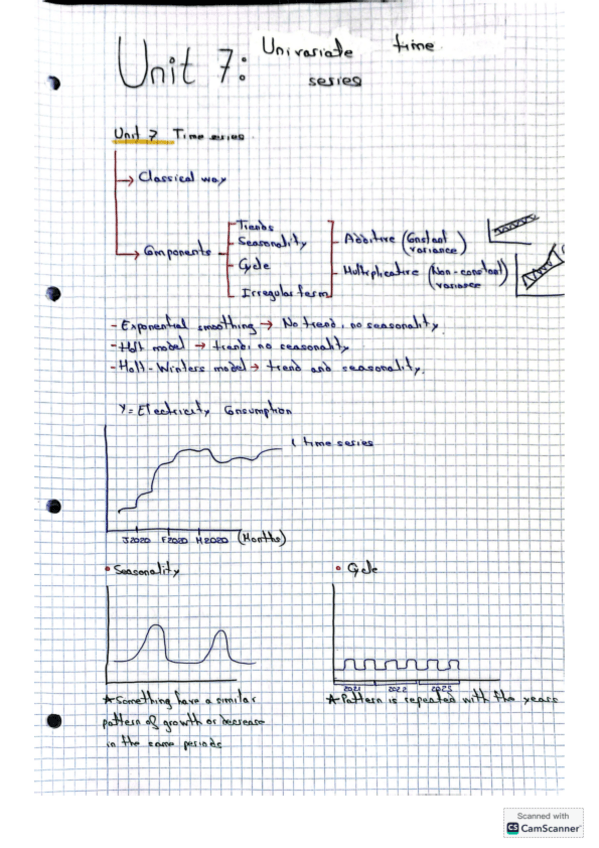 Unit 7: Univariate time
series
Unit 7 Time series
→ Classical way
→ Components
Trends
Seasonality
Cycle
Irregular form
Additive (Constant
variance)
Multiplicative (Non-constant)
(variance
- Exponential smoothing → No trend, no seasonality.
- Holt model → trend, no seasonality
- Holt-Winters model → trend and seasonality.
Y = Electricity Consumption
time series
J2020 F2020 M2020 (Months)
• Seasonality
• Cycle
2021 2022 2023
* Something have a similar
pattern of growth or decrease
in the same periods
* Pattern is repeated with the years
Scanned with
CS CamScanner